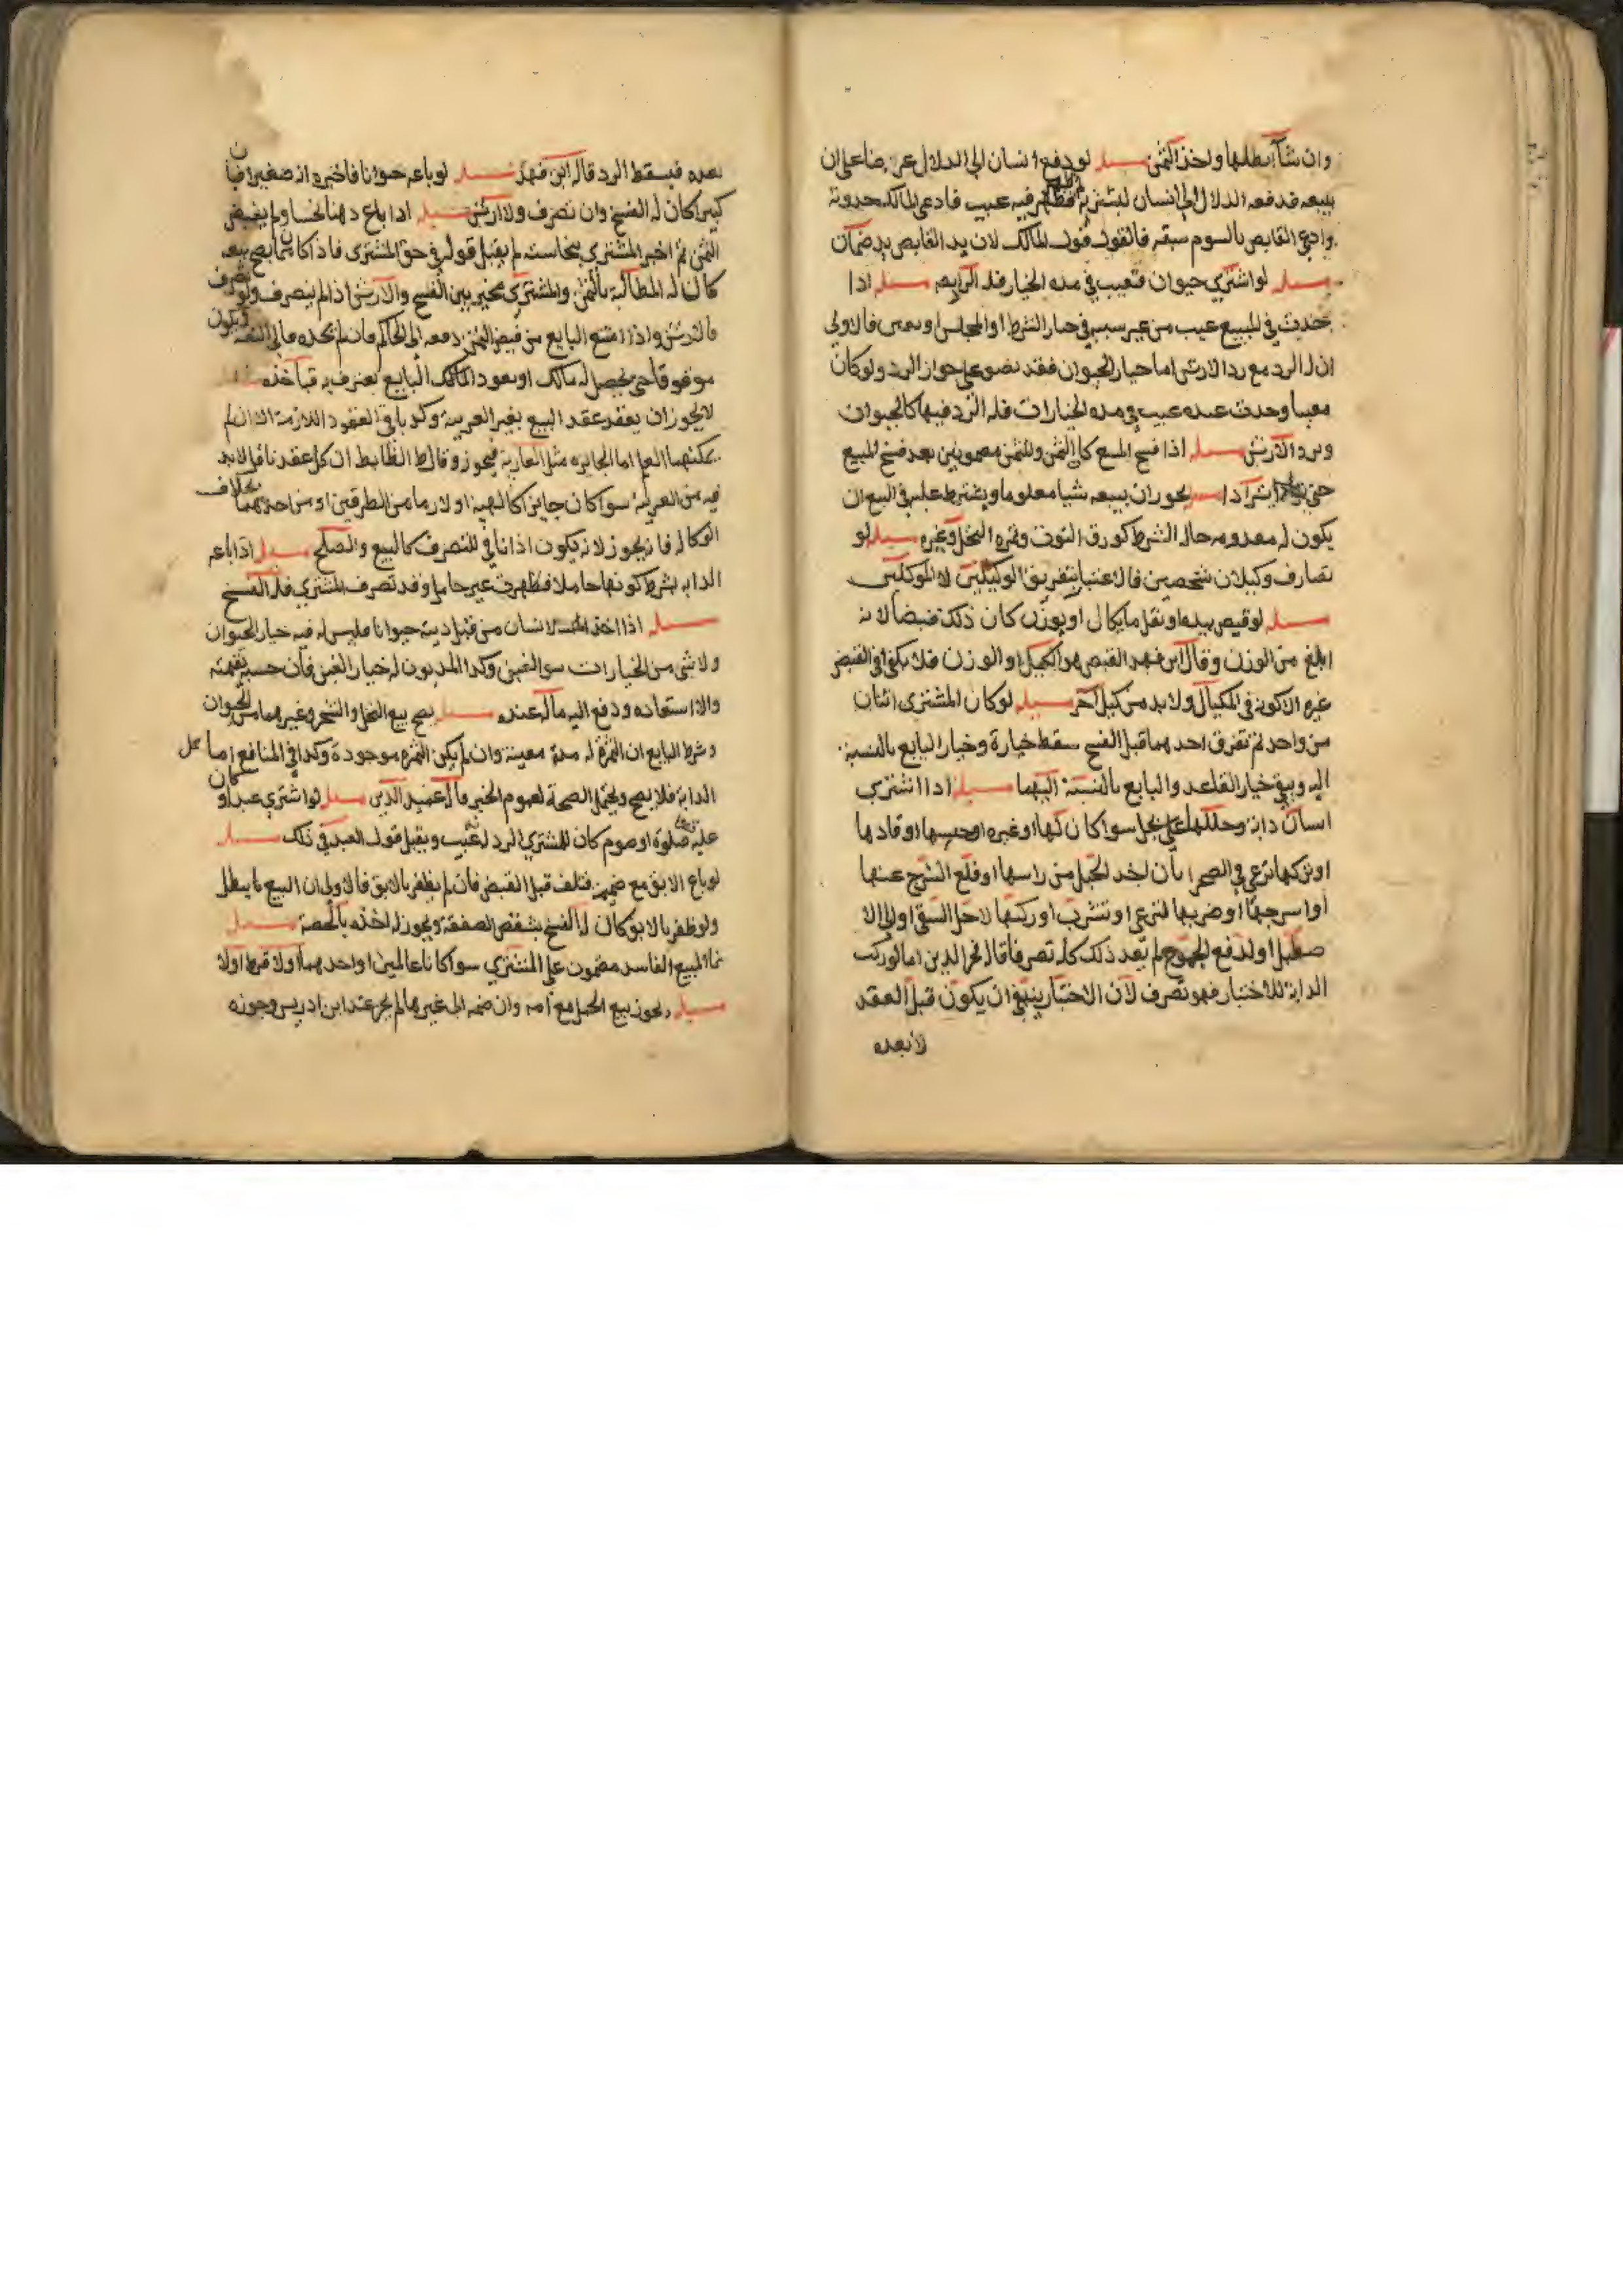 وان شآ ابطلها واخذ الثمن مسله لو دفع انسان الى الدلال عرضا على ان
يبيعه فدفعه الدلال الى انسان ليشتريه فظهر فيه عيب فادعى المالك حدوثه
وادعى القابض بالسوم سبقه فالقول قول المالك لان يد القابض يد ضمان
مسله لو اشترى حيوان فتعيب في مده الخيار فله الرابعه مسله اذا
حدث في المبيع عيب من غير سببه في خيار الشرط او المجلس او فالاولى
ان له الرد مع رد الارش اما خيار الحيوان فقد نصو على جواز الرد ولو كان
معيبا وحدث عنده عيب في مده الخيارات فله الرد فيها كالحيوان
ويرد الارش مسله اذا فسخ المبيع كان الثمن والمثمن مضمونين بعد فسخ المبيع
حتى مسله يجوز ان يبيعه شيا معلوما ويشترط عليه في البيع ان
يكون له معدومه حال الشرط كورق التوت وثمره النخل وغيره مسله لو
تصارف وكيلان شخصين فالاعتبار بتفريق الوكيلين لا الموكلين
مسله لو قبض بيده او نقل ما يكال او يوزن كان ذلك قبضا لانه
ابلغ من الوزن وقال ابن فهد القبض هو الكيل او الوزن فلا يكفي في القبض
غيره الا كونه في المكيال ولا بد من كيل آخر مسله لو كان المشترى اثنان
من واحد ثم تفرق احدهما قبل الفسخ سقط خياره وخيار البايع بالنسبة
اليه وبقي خيار القاعد والبايع بالنسبة اليهما مسله اذا اشترى
انسان دابه وحللها على بجل سوا كان لها او غيره او حبسها او قادها
او تركها ترعى في الصحرا بان اخذ الحبل من راسها او قلع السرج عنها
او اسرجها او ضربها لترعى او تشرب او ركبها لاجل السقى او الى الا
صطبل او لدفع الجموح لم يعد ذلك كله تصرفا قاله فخر الدين اما لو ركب
الدابة للاختبار فهو تصرف لان الاختبار ينبغي ان يكون قبل العقد
لا بعده
بعده فيسقط الرد قاله ابن فهد مسله لو باعه حيوانا فاخبره انه صغير فبان
كبيرا كان له الفسخ وان تصرف ولا ارش مسله اذا باع دهنا نجسا ولم يقبض
الثمن ثم اخبر المشترى بنجاسته لم يقبل قوله في حق المشترى فاذا كان مما يصح بيعه
كان له المطالبة بالثمن والمشترى مخير بين الفسخ والارش اذا لم يتصرف ولو تصرف
فالارش واذا امتنع البايع من قبض الثمن دفعه الى الحاكم فان لم يجده فالى الثقه ويكون
موقوفا حتى يحصل له مالك او يعود المالك البايع يعترف به فيآخذه مسله
لا يجوز ان يعقد عقد البيع بغير العربية وكذا باقي العقود اللازمة الا ان لم
يمكنهما العلم اما الجائزه مثل العارية فيجوز وقال ط الضابط ان كل عقد ناقل لابد
فيه من العربيه سوا كان جايزا كالهبه او لازما من الطرفين او من احدهما بخلاف
الوكاله فانه يجوز لانه يكون اذنا في التصرف كالبيع والصلح مسله اذا باعه
الدابه بشرط كونها حاملا فظهرت غير حامل وقد تصرف المشترى فله الفسخ
مسله اذا اخذ الانسان من قبل دينه حيوانا فليس له فيه خيار الحيوان
ولا شي من الخيارات سوا الغبن وكذا المديون له خيار الغبن فان حسبه بقيمته
والا استعاده ودفع اليه ماله عنده مسله يصح بيع النخل والشجر وغيرهما من الحيوان
وشرط البايع ان الثمرة له مدة معينة وان لم يكن الثمره موجودة وكذا في المنافع اما حمل
الدابة فلا يصح ويحتمل الصحة لعموم الخبر قاله عميد الدين مسله لو اشترى عبدا وكان
عليه صلوة او صوم كان للمشترى الرد لعيب ويقبل قول العبد في ذلك مسله
لو باع الابق مع ضميمه فتلف قبل القبض فان لم يظفر بالابق فالاولى ان البيع ما يبطل
ولو ظفر بالابق كان له الفسخ بتبعض الصفقة ويجوز له اخذه بالحصة مسله
نما المبيع الفاسد مضمون على المشترى سوا كانا عالمين او احدهما او لا فرط او لا
مسله يجوز بيع الحمل مع امه وان ضمه الى غيرها لم يجز عند ابن ادريس وجوزه